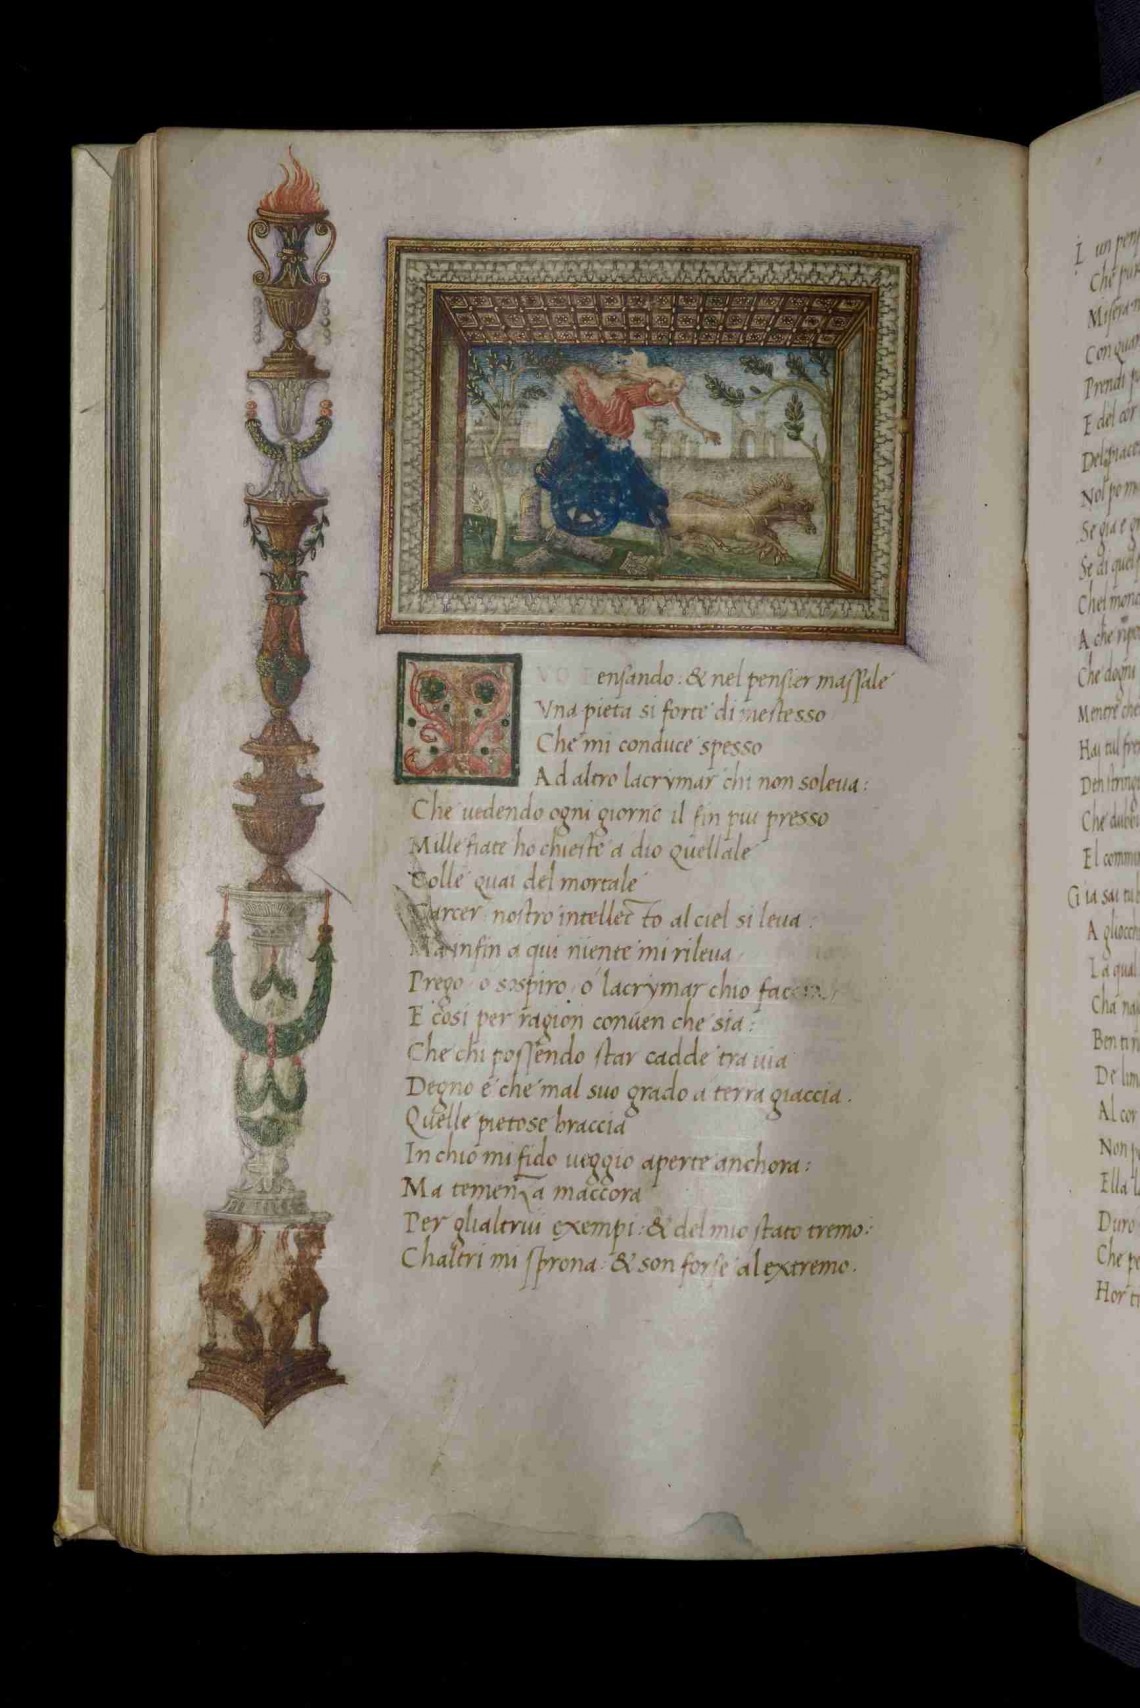 VO Pensando: & nel pensier massale
Vna pieta si forte di mestesso
Che mi conduce spesso
Ad altro lacrymar chi non soleua:
Che uedendo ogni giorno il fin piu presso
Mille fiate ho chieste a dio quellale
Colle quai del mortale
Carcer nostro intellecto al ciel si leua:
Ma infin a qui niente mi rileua
Prego o sospiro o lacrymar chio faccia
E cosi per ragion conuen che sia:
Che chi possendo star cadde tra uia
Degno e che mal suo grado a terra giaccia.
Quelle pietose braccia
In chio mi fido ueggio aperte anchora:
Ma temenza maccora
Per glialtrui exempi: & del mio stato tremo:
Chaltri mi sprona: & son forse al extremo.
I un pen
Che
Misera
Con quan
Prendi
E del cor
Nol po
Se gia e
Se di quel
Chel mond
A che
Che dogni
Mentre che
Hai tul fre
Che
El commu
Gia sai tu
A gliocch
La qual
Cha
Ben ti
De
Al cor
Non
Ella
Duro
Che pe
Hor